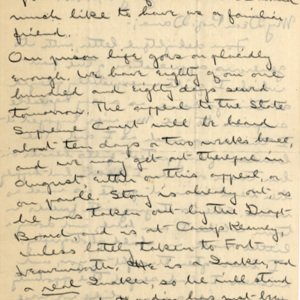 much like to have us a familiar
friend.
Our prison life goes on placidly
enough. We have eighty of our one
hundred and eighty days served
tomorrow. The appeal to the State
Supreme Court will be heard
about ten days or two weeks hence,
and we may get out therefore in
August, either on this appeal, or
on parole. Story is already out, as
he was taken out by the Draft
Board, and is at Camp Kearny,
unless lately taken to Fort
Leavenworth. He is a Quaker, and
a real Quaker, so he will stand